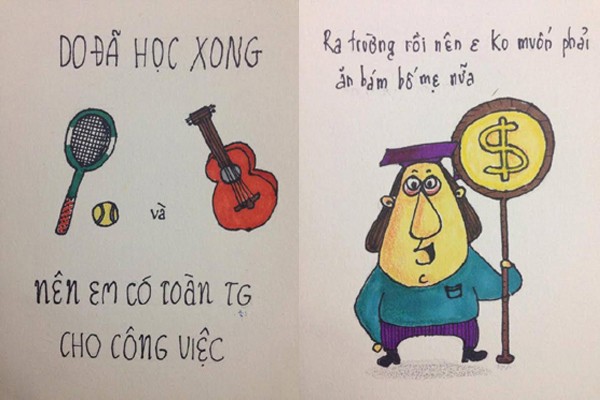 DO ĐÃ HỌC XONG
và
NÊN EM CÓ TOÀN TG
CHO CÔNG VIỆC
Ra trường rồi nên e ko muốn phải
ăn bám bố mẹ nữa
$